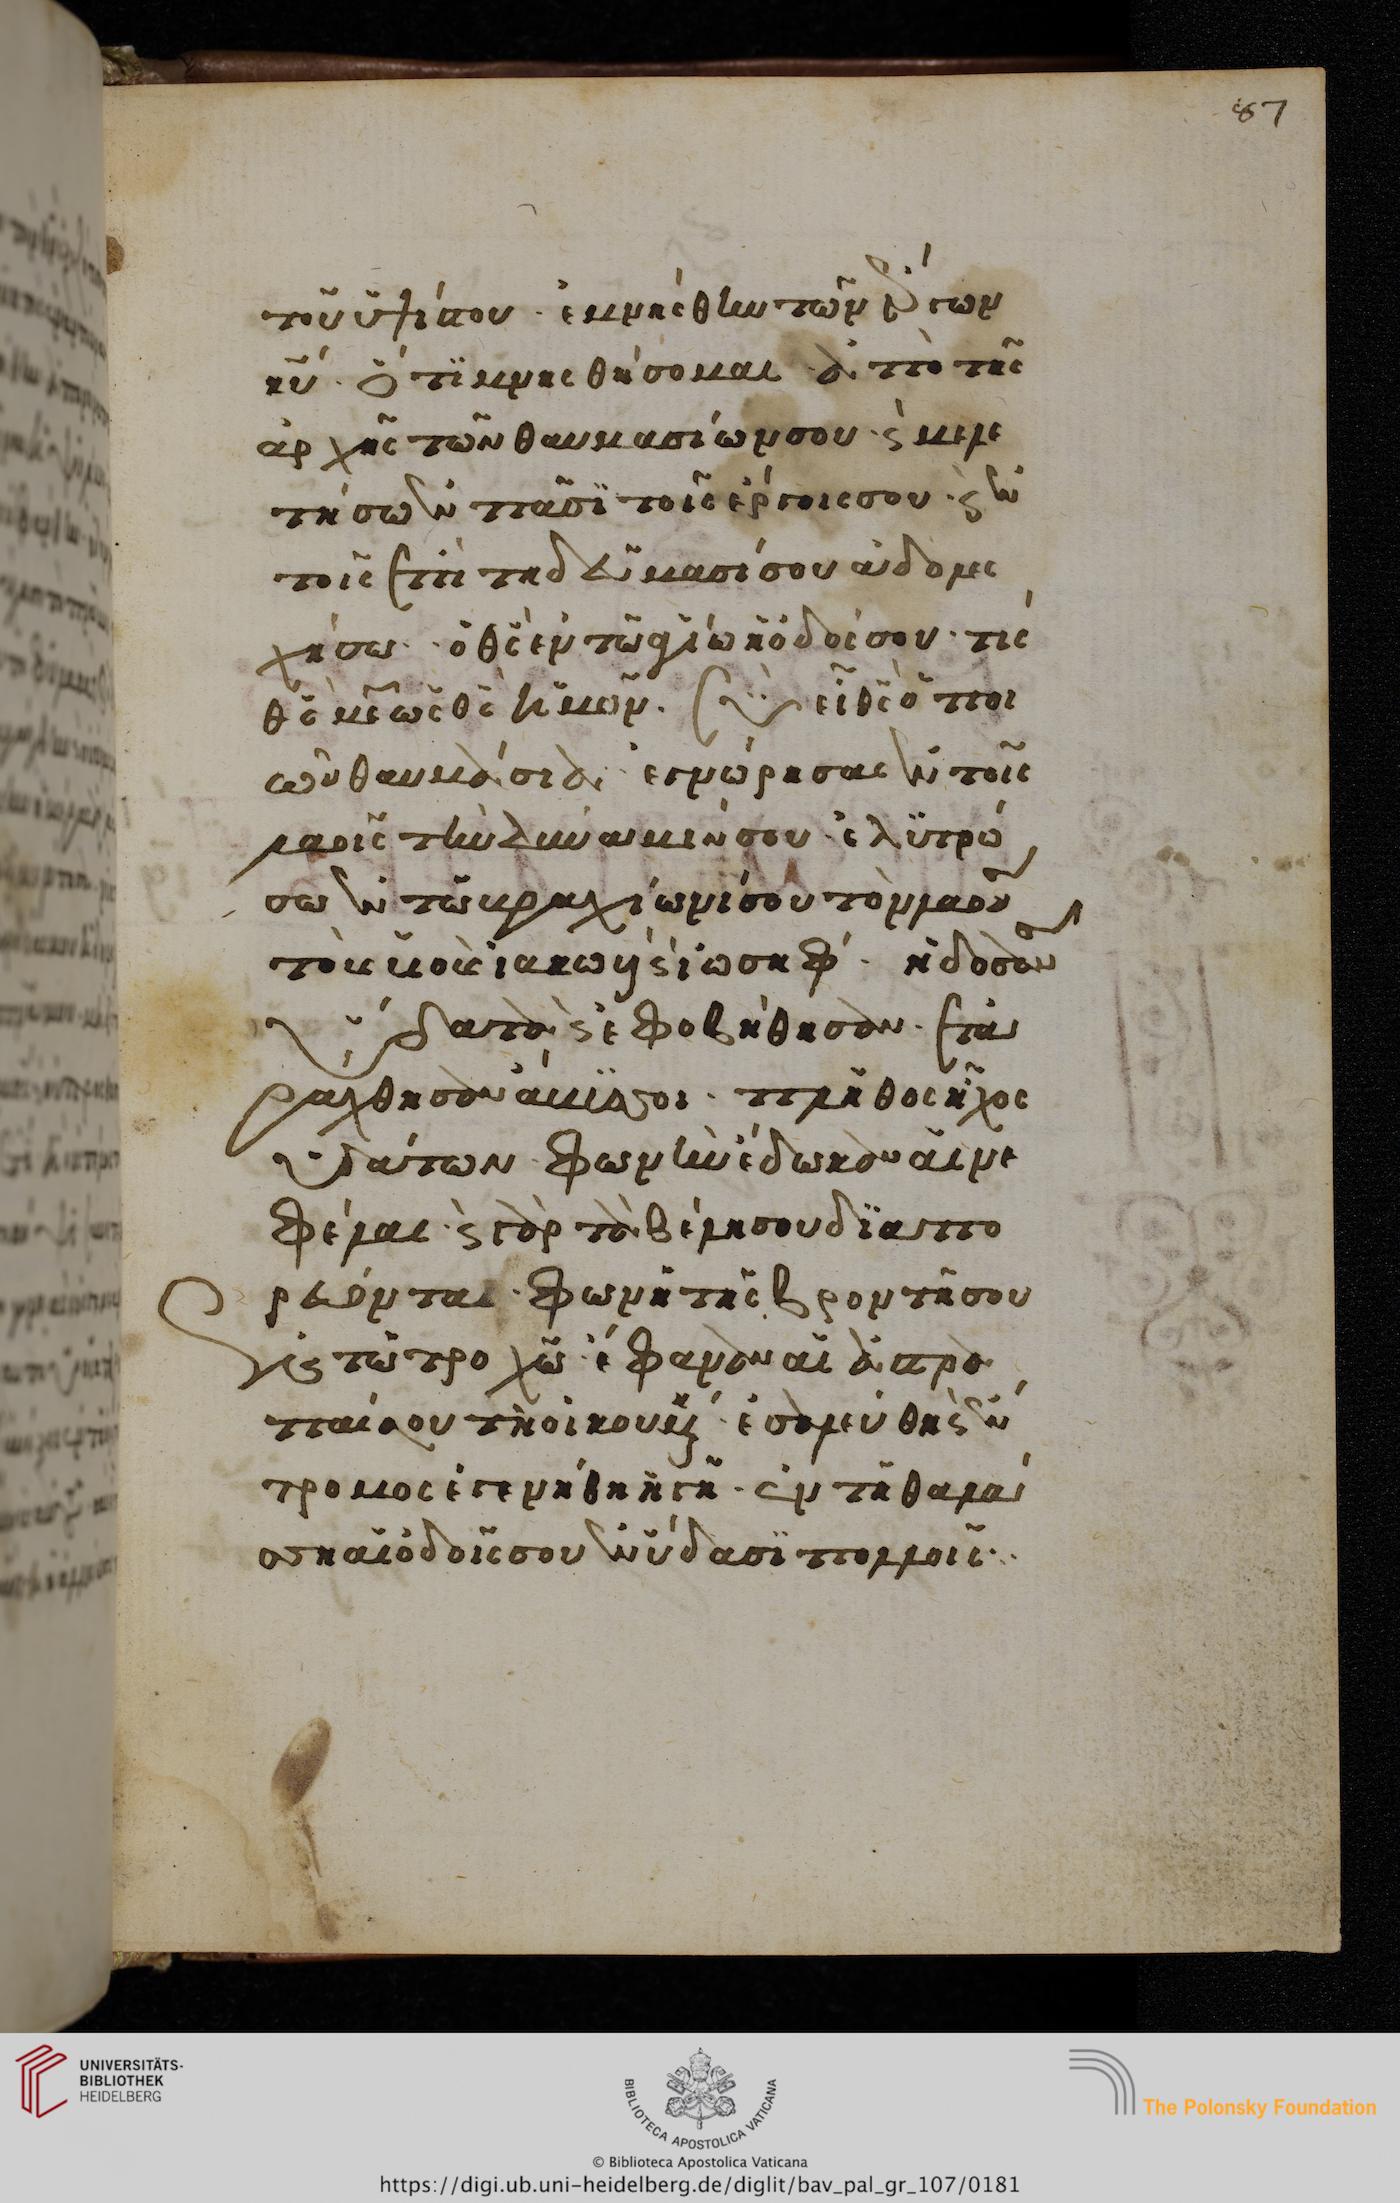 87
τοῦ ὑψίστου · ἐμνήσθην τῶν ἔργων
κυ · ὅτι μνησθήσομαι ἀπὸ τῆς
ἀρχῆς τῶν θαυμασίων σου · ϛ μελε
τήσω ἐν πᾶσι τοῖς ἔργοις σου · ϛ ἐν
τοῖς ἐπιτηδεύμασί σου ἀδολες
χήσω · ὁ θς ἐν τῶ ἁγίω ἡ ὁδός σου · τίς
θς μέγας ὡς ὁ θς ἡμῶν · σὺ εἶ θς ὁ ποι
ῶν θαυμάσια · ἐγνώρησας ἐν τοῖς
λαοῖς τὴν δύναμίν σου · ἐλυτρώ
σω ἐν τῶ βραχίωνί σου τὸν λαόν σου
τοὺς υἱοὺς ἰακωβ ϛ ἰωσήφ · ἤδοσάν σε
ὕδατα ϛ ἐφοβήθησαν · ἐτα
ράχθησαν ἄβυσσοι · πλῆθος ἤχος
ὑδάτων · φωνὴν ἔδωκαν αἱ νε
φέλαι · ϛ γὰρ τὰ βέλη σου διαπο
ρεύονται · φωνὴ τῆς βροντῆς σου
ἐν τῶ τροχῶ · ἔφαναν αἱ ἀστρα
παί σου τῆ οἰκουμένη · ἐσαλεύθη ϛ ἔν
τρομος ἐγενήθη ἡ γῆ · ἐν τῆ θαλάσ
ση αἱ ὁδοί σου ἐν ὕδασι πολλοῖς ·
UNIVERSITÄTS-
BIBLIOTHEK
HEIDELBERG
BIBLIOTECA APOSTOLICA VATICANA
The Polonsky Foundation
© Biblioteca Apostolica Vaticana
https://digi.ub.uni-heidelberg.de/diglit/bav_pal_gr_107/0181